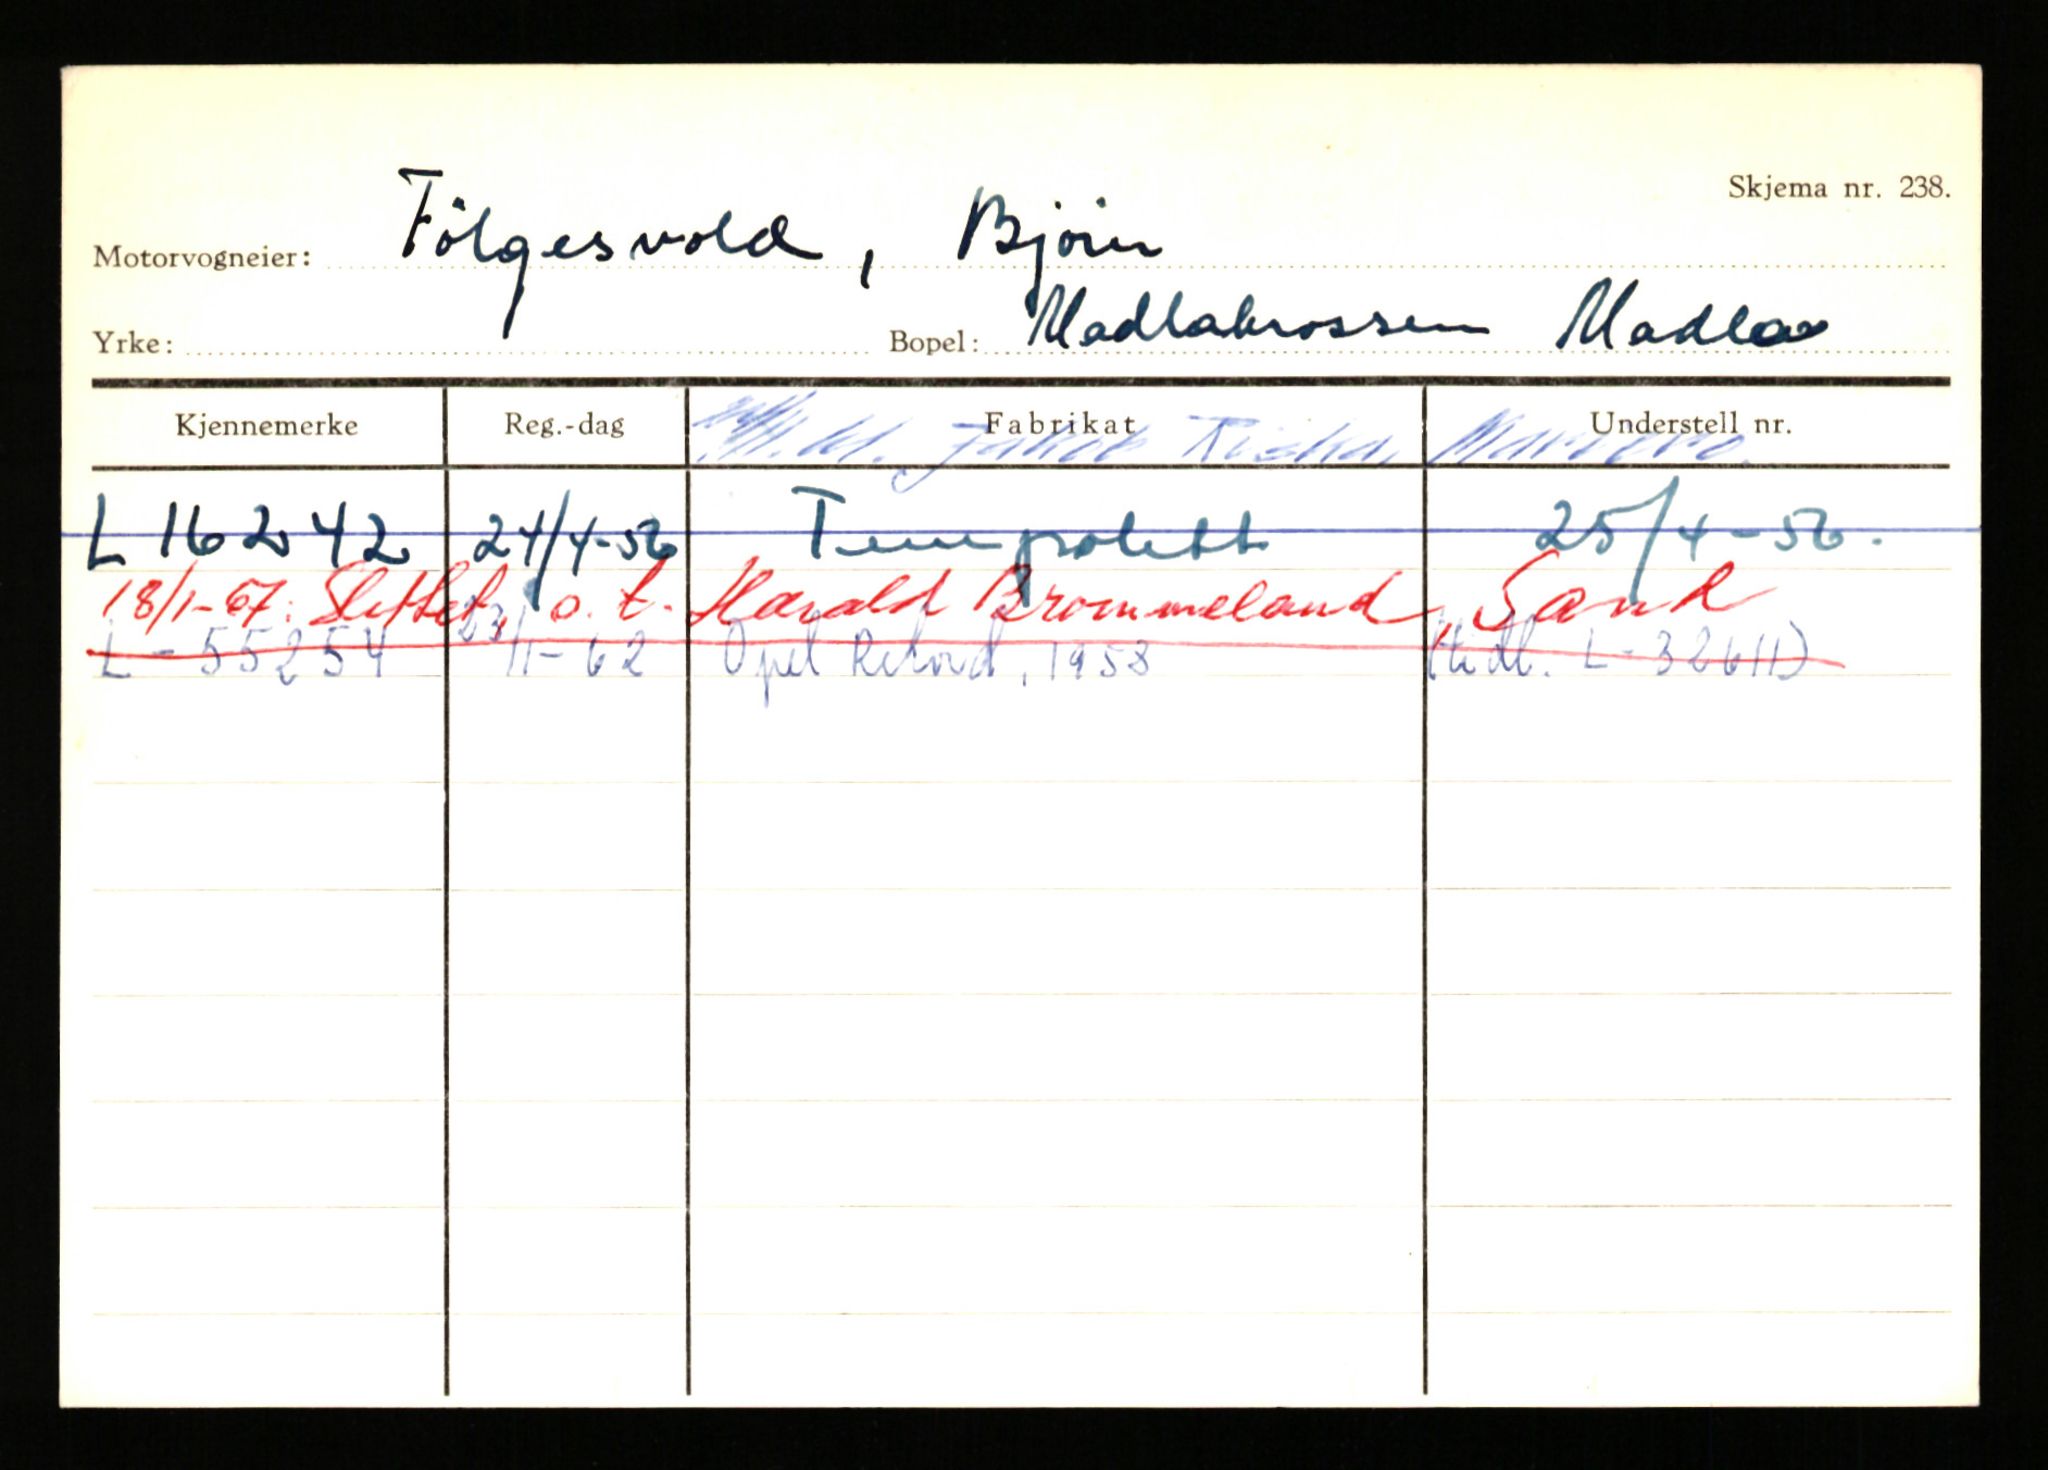 Skjema nr. 238.
Motorvogneier: Fölgesvold, Bjørn
Yrke: Bopel: Madlakrossen Madla
Kjennemerke Reg.-dag Fabrikat Understell nr.
Jakob Tiska,
L 16242 24/4-56 Tempolett 25/4-56.
18/1-67. Slettet, o. t. Harald Brommeland, Sand
L-55254 23/11-62 Opel Rekord, 1958 (tidl. L-32611)